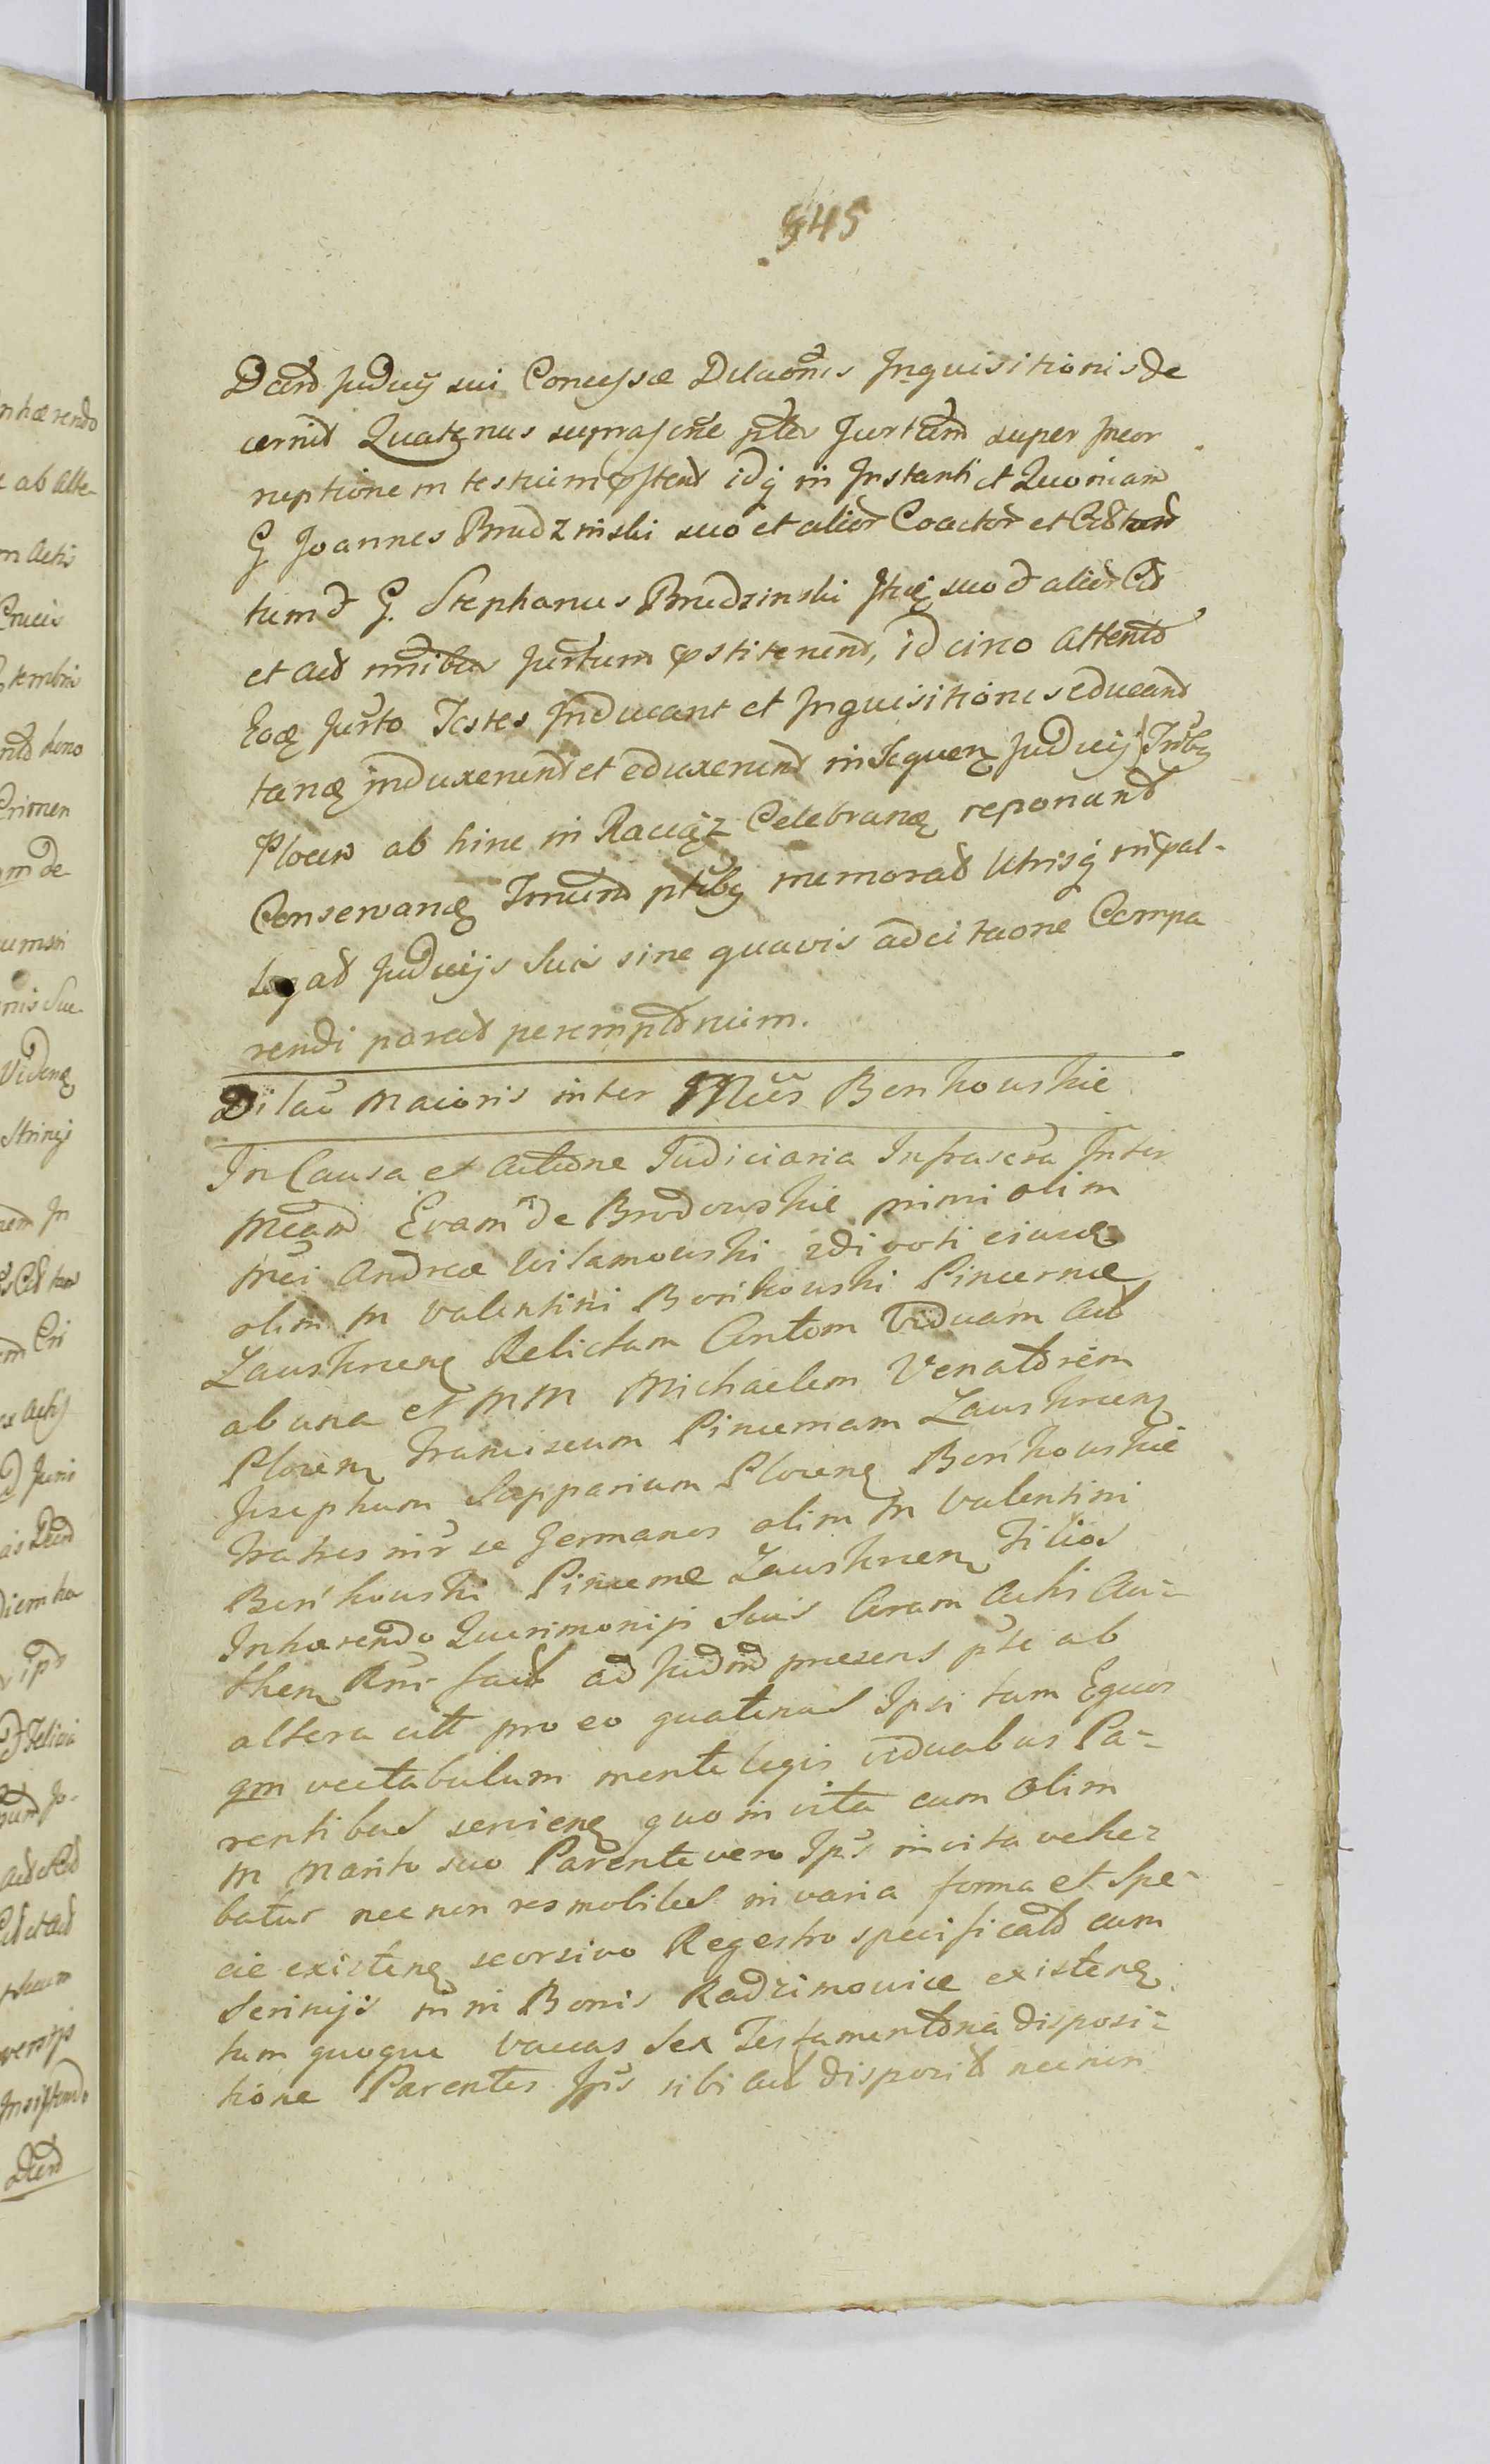 545
Decrd Judicij sui Concessæ Dilaōnis Inquisitionis de
cernit Quatenus suprascrie ptes Jurtum super Incor
ruptionem testium pstent idq in Instanti et Quoniam
G Joannes Brudzinski suo et alior Coactor et
tum d G. Stephanus Brudzinski suo d alior
et Act nnibus Jurtum pstiterunt, idcirco Attento
Eoq Jurto Testes Inducant et Inquisitiones educant
tanq induxerunt et eduxerunt in Sequen Judicij
Plocen ab hinc in Raciąz Celebranq reponant
Conservanq Tmum ptibq memorat Utrisq
Judicijs Suis sine quavis adcitaone Compa
rendi
Dilao Maioris inter MGcos Bońkouskie
In Causa et Actione Judiciaria Infrascra Inter
Mcam Evam de Brodouskie primi olim
Mci Andreæ Wilamouski 2di voti eiusq
olim M Valentini Bońkouski Pincernæ
Zauskrnenq Relictam Antom Viduam Act
ab una et MM Michaelem Venatorem
Plocenq Franciscum Pincernam Zauskrnenq
Josephum Dapparium Plocenq Bońkouskie
Fratres inr se Germanos olim M Valentini
Bońkouski Pincernæ Zauskrnenq Filios
Inhærendo Querimonijs Suis Coram Actis Au-
then fact ad Judm præsens pte ab
altera citt pro eo quatenus Ipsi tam Equos
qm vectabulum mente legis viduabus Pa-
rentibus servienq quo in vita cum olim
M Marito suo Parente vero Ips in vita vehe-
batur nec non res mobiles in varia forma et Spe-
cie existenq seorsivo Regestro specificato cum
Scrinijs in Bonis Radzimouice existenq
tum quoque Vaccas Sex Testamentoria disposi-
tione Parentes Ips sibi Act disposit nec non